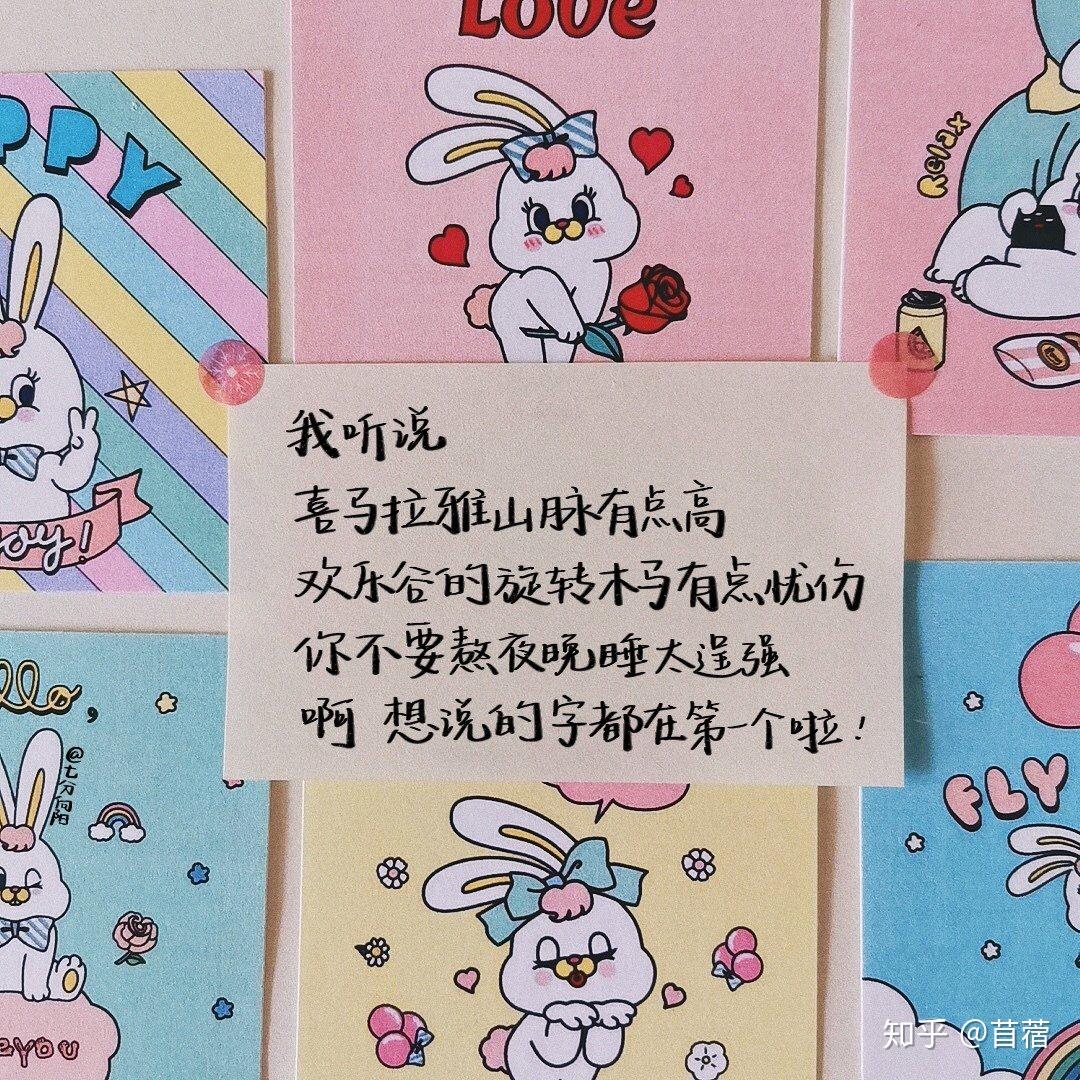 Love
PPY
Relax
我听说
喜马拉雅山脉有点高
欢乐谷的旋转木马有点忧伤
你不要熬夜晚睡太逞强
啊 想说的字都在第一个啦！
oy!
llo,
@七分向阳
FLY
eyou
知乎 @苜蓿